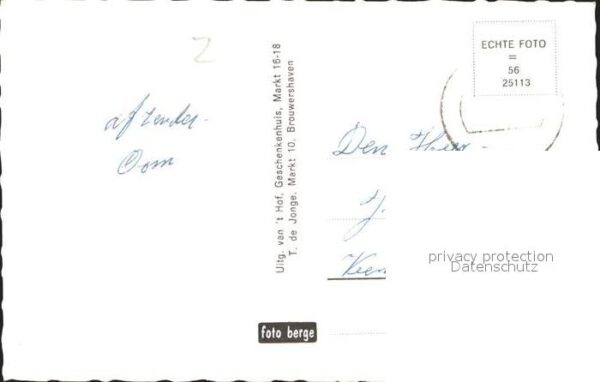 Z
afzender.
Oom
Uitg. van 't Hof, Geschenkenhuis, Markt 16-18
T. de Jonge. Markt 10. Brouwershaven
foto berge
ECHTE FOTO
=
56
25113
Den Heer
J.
privacy protection
Datenschutz